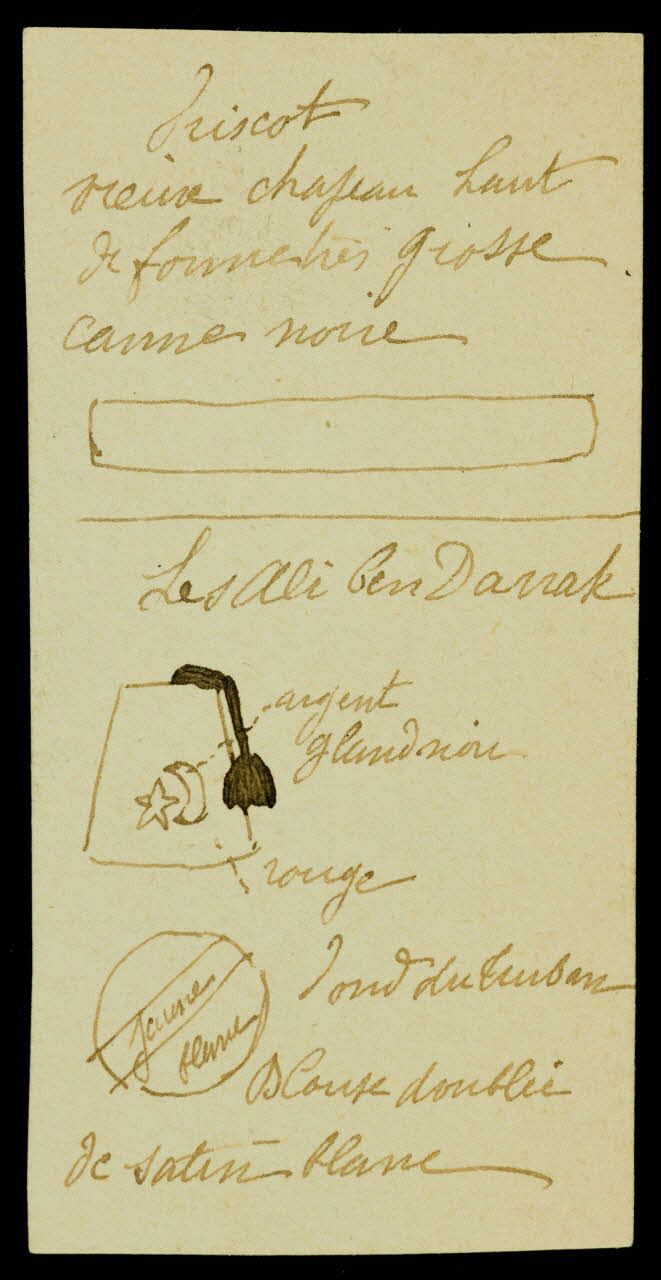 Driscot
vieux chapeau haut
de forme très grosse
canne noire
Les Ali ben Darrak
argent
gland noir
rouge
jaune
blanc
Fond du turban
Blouse doublée
de satin blanc